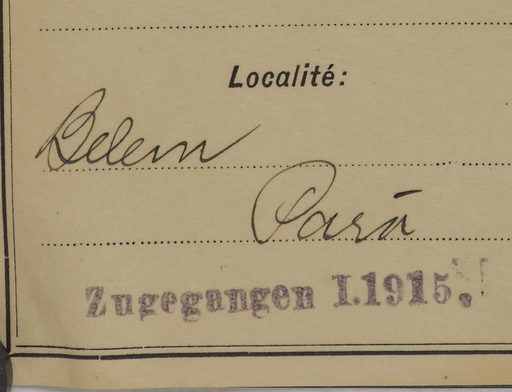 Localité:
Belem
Pará
Zugegangen I.1915.